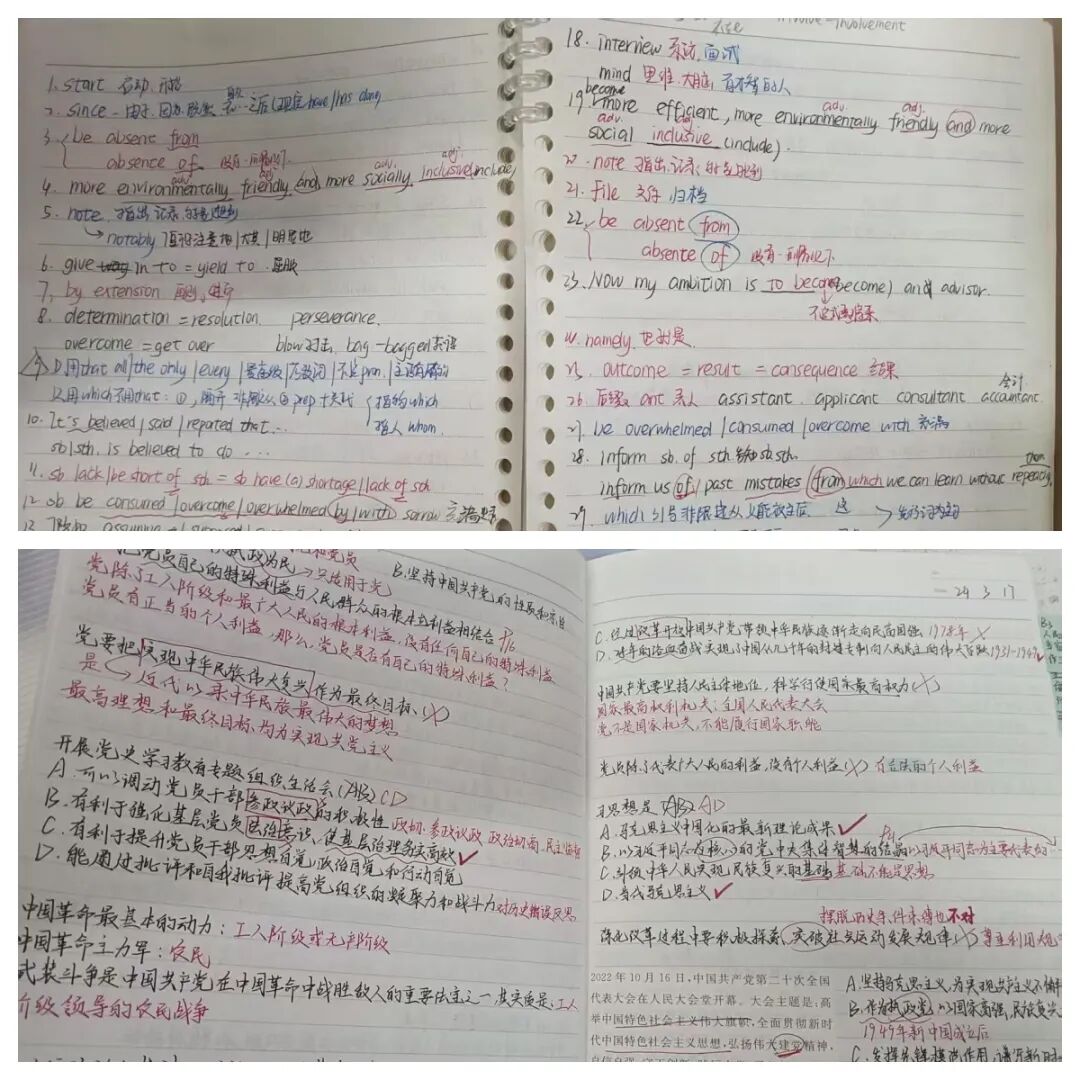 1. start 启动 开始
2. since 由于 因为 既然
3. be absent from
absence of 没有
adv. adj.
4. more environmentally friendly and more socially inclusive include
5. note 指出 记录
→ notably 值得注意的 | 尤其 | 明显地
6. give in to = yield to 屈服
7. by extension
8. determination = resolution. perseverance.
overcome = get over
①用that all | the only | every | 最高级 | 序数词
只用which不用that: ①
指物which
指人whom.
10. It's believed | said | reported that...
sb | sth. is believed to do ...
11. sb lack | be short of sth = sb have (a) shortage | lack of sth
12. sb be consumed | overcome | overwhelmed by | with sorrow
involve - involvement
18. interview 采访. 面试
mind 思维. 大脑.
become
19. more efficient, more environmentally friendly and more
adv. adj.
adv. adj.
social inclusive (include).
note 指出. 记录
21. file 文件 归档
22. be absent from
absente of 没有
23. Now my ambition is to become(become) an advisor.
namely. 也就是
outcome = result = consequence 结果
会计
26. 后缀 ant 表人 assistant. applicant consultant accountant.
27. be overwhelmed | consumed | overcome with 充满
28. inform sb. of sth 告知sb sth.
them
inform us of past mistakes from which we can learn without repeating
29. which 引导非限定
党员自己的特殊利益与人民群众的根本利益相结合
B.坚持中国共产党的性质和宗旨
党除了工人阶级和最广大人民的根本利益, 没有任何自己的特殊利益
党员有正当的个人利益. 那么, 党员是否有自己的特殊利益?
党要把实现中华民族伟大复兴作为最终目标. (×)
是 → 近代以来中华民族最伟大的梦想
最高理想和最终目标. 均为实现共产主义
开展党史学习教育专题组织生活会 (AB) CD
A. 可以调动党员干部参政议政的积极性 政协: 参政议政 政治协商, 民主监督
B. 有利于强化基层党员法治意识, 使基层治理务实高效
C. 有利于提升党员干部思想自觉、政治自觉和行动自觉 ✓
D. 能通过批评和自我批评提高党组织的凝聚力和战斗力 对历史错误反思
中国革命最基本的动力: 工人阶级或无产阶级
中国革命主力军: 农民
武装斗争是中国共产党在中国革命中战胜敌人的重要法宝之一. 其实质是: 工人
阶级领导的农民战争
24. 3. 17
C. 经过改革开放中国共产党带领中华民族逐渐走向民富国强 1978年 ×
D. 实现了中国从几千年的封建专制向人民民主的伟大飞跃 1931-1949 ✓
中国共产党要坚持人民主体地位, 科学行使国家最高权力 (×)
国家最高权利机关: 全国人民代表大会
党不是国家机关, 不能履行国家职能
党员除了代表广大人民的利益, 没有个人利益 (×) 有合法的个人利益
习思想是 (AB) AD
A. 马克思主义中国化的最新理论成果 ✓
B. 以习近平同志为核心的党中央集体智慧的结晶 以习近平同志为主要代表的
C. 引领中华人民实现民族复兴的基础 基础不能是思想
D. 当代马克思主义 ✓
摆脱历史条件束缚也不对
深化改革过程中要积极探索, 突破社会运动发展规律 (×) 尊重利用规
2022 年 10 月 16 日,中国共产党第二十次全国
代表大会在人民大会堂开幕。大会主题是:高
举中国特色社会主义伟大旗帜,全面贯彻新时
代中国特色社会主义思想,弘扬伟大建党精神,
A. 坚持马克思主义, 为实现共产主义不懈
B. 作为执政党 以国家富强, 民族复兴
1949年新中国成立后
C. 发挥先锋模范作用, 谱写新时